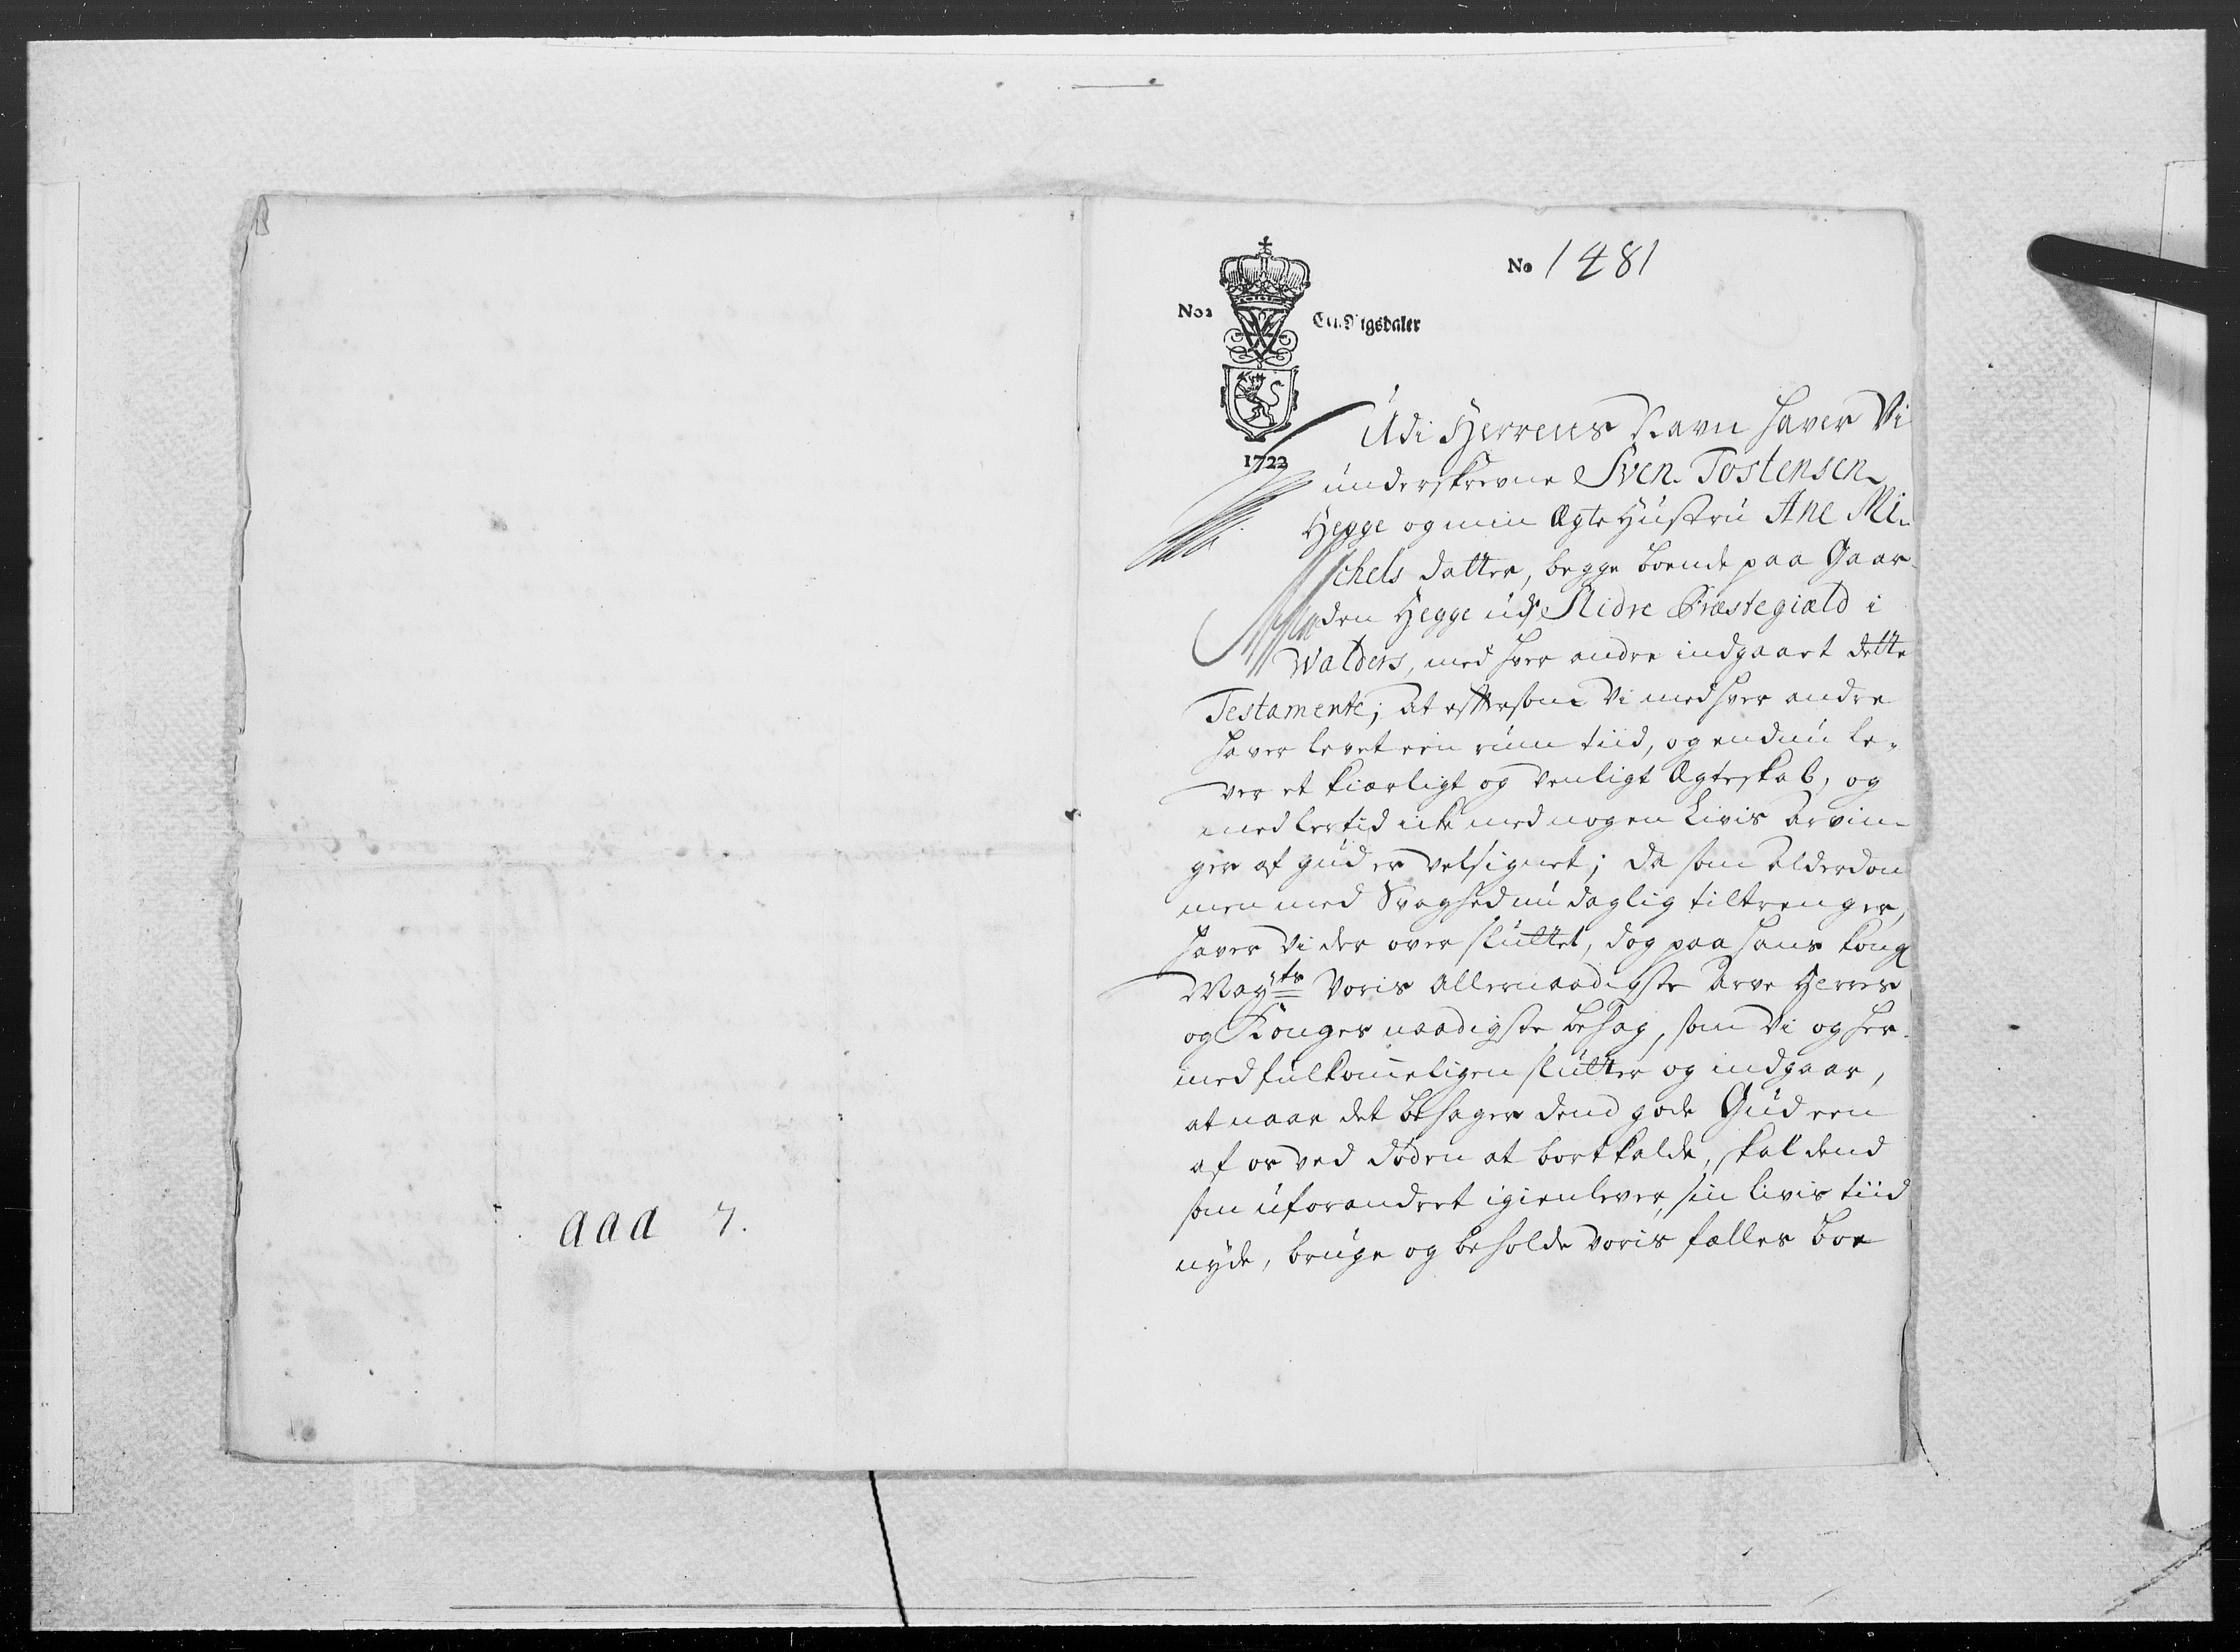 No 1481
No2 Een Rigsdaler
1722
Udi Herrens Navn hafver Vi
underskrevne Sven Tostensen
Hegge og min Ægte Hustru Ane Mi-
chels datter, begge boende paa Gaar-
den Hegge udj Slidre Præstegiæld i
Walders, med hver andre indgaaet dette
Testamente; at eftersom Vi med hver andre
hafver levet een rum tiid, og endnu le-
ver et kiærligt og venligt Ægteskab, og
medlertid icke med nogen Livis Arvin-
ger af gud er velsignet; da som Alderdom
men med Svaghed nu daglig tiltrenger,
hafver Vi der over sluttet, dog paa Hans Kong
Mayts Voris Allernaadigste Arve Herres
og Konges naadigste behag, som Vi og her-
med fulkommeligen slutter og indgaar,
at naar det behager dend gode Gud een
af os ved døden at bortkalde, skal dend
som uforandret igienlever, sin livis tiid
nyde, bruge og beholde voris fælles boe
aaa 7.